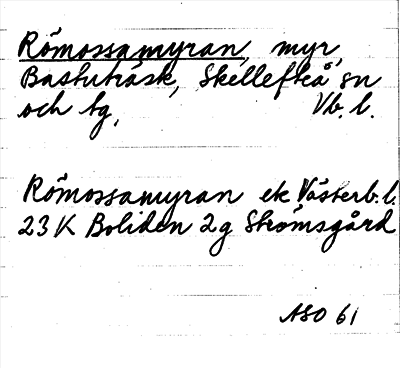 Römossamyran, myr,
Bastuträsk, Skellefteå sn
och tg, Vb. l.
Römossamyran ek Västerb. l.
23 K Boliden 2g Strömsgård
ASO 61